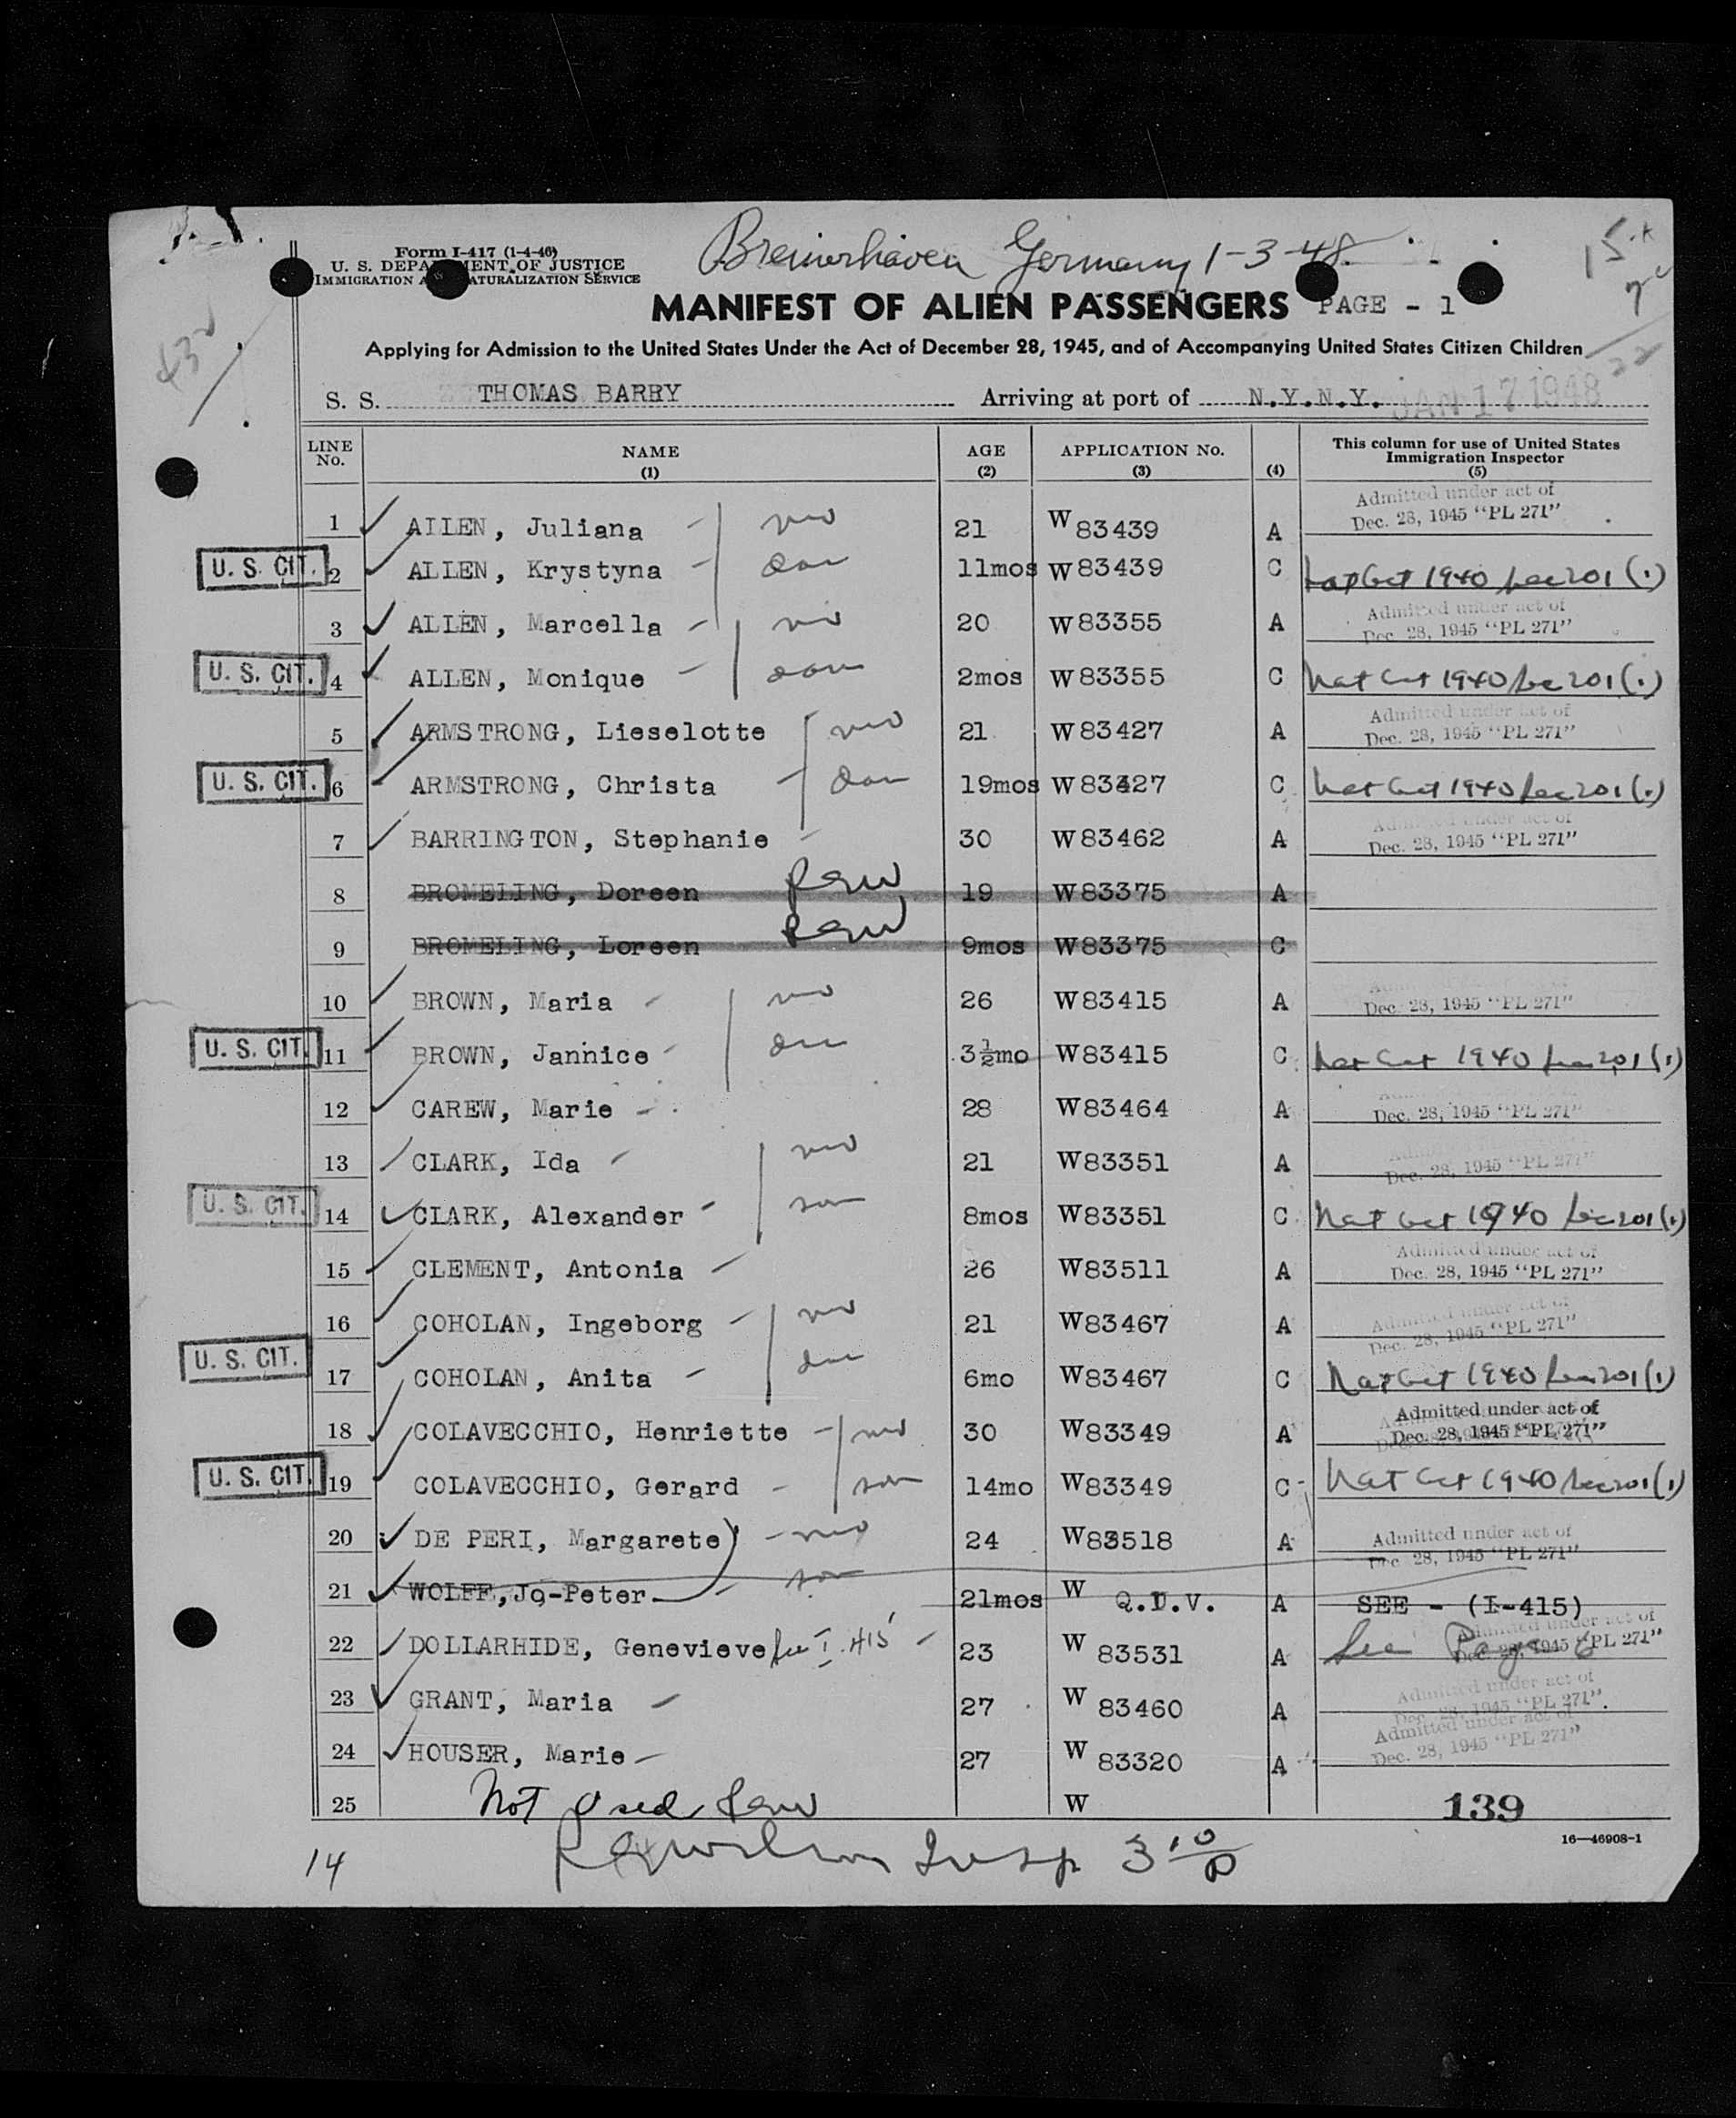 Form I-417 (1-4-46)
U. S. DEPARTMENT OF JUSTICE
IMMIGRATION AND NATURALIZATION SERVICE
Bremerhaven Germany 1-3-48
MANIFEST OF ALIEN PASSENGERS PAGE - 1
Applying for Admission to the United States Under the Act of December 28, 1945, and of Accompanying United States Citizen Children
S. S. THOMAS BARRY Arriving at port of N.Y.N.Y. JAN 17 1948
LINE No. NAME (1) AGE (2) APPLICATION No. (3) (4) This column for use of United States Immigration Inspector (5)
1 ALLEN, Juliana mo 21 W 83439 A Admitted under act of Dec. 28, 1945 "PL 271"
U. S. CIT. 2 ALLEN, Krystyna dau 11mos W 83439 C Nat Act 1940 Sec 201 (1)
3 ALLEN, Marcella mo 20 W 83355 A Admitted under act of Dec. 28, 1945 "PL 271"
U. S. CIT. 4 ALLEN, Monique dau 2mos W 83355 C Nat Act 1940 Sec 201 (1)
5 ARMSTRONG, Lieselotte mo 21 W 83427 A Admitted under act of Dec. 28, 1945 "PL 271"
U. S. CIT. 6 ARMSTRONG, Christa dau 19mos W 83427 C Nat Act 1940 Sec 201 (1)
7 BARRINGTON, Stephanie 30 W 83462 A Dec. 28, 1945 "PL 271"
8 BROMELING, Doreen 19 W 83375 A
9 BROMELING, Loreen 9mos W 83375 C
10 BROWN, Maria mo 26 W 83415 A Dec. 28, 1945 "PL 271"
U. S. CIT. 11 BROWN, Jannice dau 3½mo W 83415 C Nat Act 1940 Sec 201 (1)
12 CAREW, Marie 28 W 83464 A Dec. 28, 1945 "PL 271"
13 CLARK, Ida mo 21 W 83351 A Dec. 28, 1945 "PL 271"
U. S. CIT. 14 CLARK, Alexander son 8mos W 83351 C Nat Act 1940 Sec 201 (1)
15 CLEMENT, Antonia 26 W 83511 A Admitted under act of Dec. 28, 1945 "PL 271"
16 COHOLAN, Ingeborg mo 21 W 83467 A Admitted under act of Dec. 28, 1945 "PL 271"
U. S. CIT. 17 COHOLAN, Anita dau 6mo W 83467 C Nat Act 1940 Sec 201 (1)
18 COLAVECCHIO, Henriette mo 30 W 83349 A Admitted under act of Dec. 28, 1945 "PL 271"
U. S. CIT. 19 COLAVECCHIO, Gerard son 14mo W 83349 C Nat Act 1940 Sec 201 (1)
20 DE PERI, Margarete mo 24 W 83518 A Admitted under act of Dec. 28, 1945 "PL 271"
21 WOLFF, Jo-Peter son 21mos W Q.I.V. A SEE - (I-415)
22 DOLLARHIDE, Genevieve see I 415 23 W 83531 A See Page 6 Admitted under act of Dec. 28, 1945 "PL 271"
23 GRANT, Maria 27 W 83460 A Admitted under act of Dec. 28, 1945 "PL 271"
24 HOUSER, Marie 27 W 83320 A Admitted under act of Dec. 28, 1945 "PL 271"
25 Not Used W 139
16—46908-1
14 Insp 3 10 P